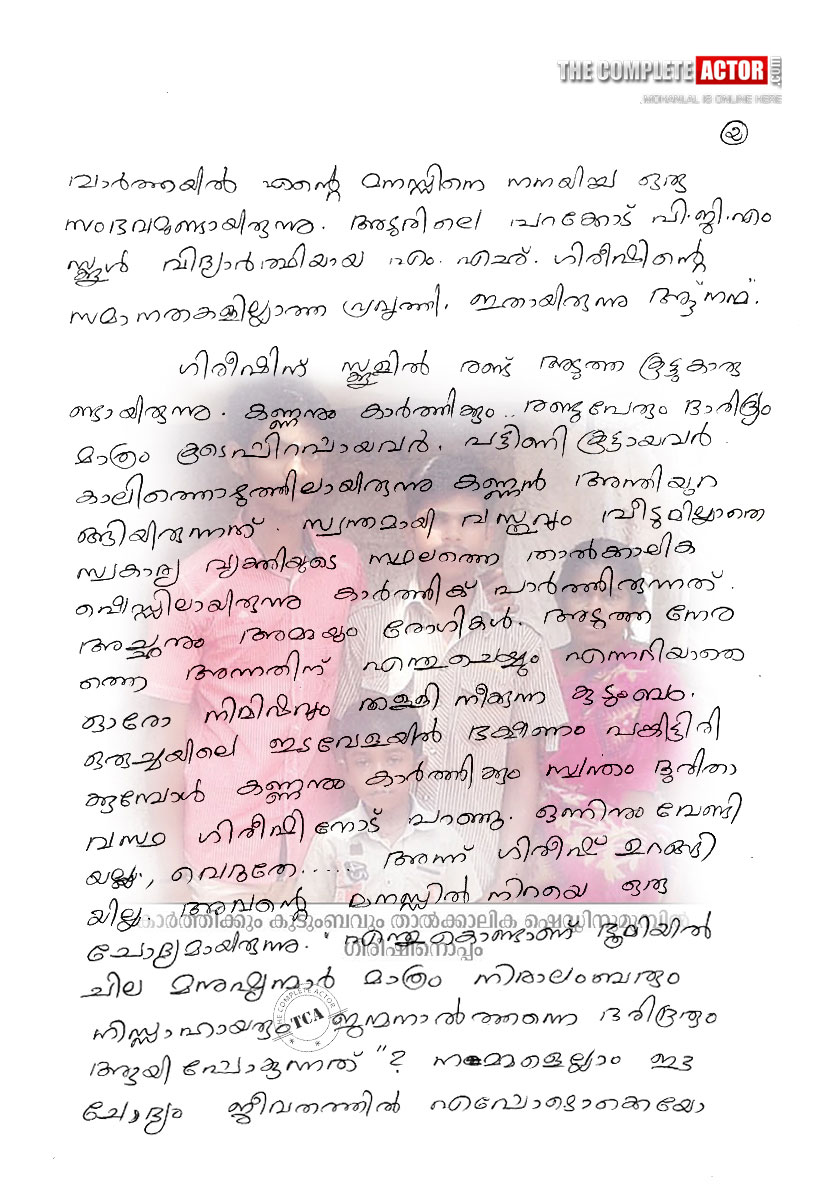 THE COMPLETE ACTOR .COM
MOHANLAL IS ONLINE HERE
൨
വാർത്തയിൽ എന്റെ മനസ്സിനെ നനയിച്ച ഒരു
സംഭവമുണ്ടായിരുന്നു. അടൂരിലെ പറക്കോട് പി.ജി.എം
സ്കൂൾ വിദ്യാർത്ഥിയായ എം. എച്ച്. ഗിരീഷിന്റെ
സമാനതകളില്ലാത്ത പ്രവൃത്തി. ഇതായിരുന്നു ആ "നന്മ".
ഗിരീഷിന് സ്കൂളിൽ രണ്ട് അടുത്ത കൂട്ടുകാരു
ണ്ടായിരുന്നു. കണ്ണനും കാർത്തിക്കും.. രണ്ടുപേരും ദാരിദ്ര്യം
മാത്രം കൂടെപ്പിറപ്പായവർ. പട്ടിണി കൂട്ടായവർ.
കാലിത്തൊഴുത്തിലായിരുന്നു കണ്ണൻ അന്തിയുറ
ങ്ങിയിരുന്നത്. സ്വന്തമായി വസ്തുവും വീടുമില്ലാതെ
സ്വകാര്യ വ്യക്തിയുടെ സ്ഥലത്തെ താൽക്കാലിക
ഷെഡ്ഡിലായിരുന്നു കാർത്തിക് പാർത്തിരുന്നത്.
അച്ഛനും അമ്മയും രോഗികൾ. അടുത്ത നേര
ത്തെ അന്നത്തിന് എന്തുചെയ്യും എന്നറിയാതെ
ഓരോ നിമിഷവും തള്ളി നീക്കുന്ന കുടുംബം.
ഒരുച്ചയിലെ ഇടവേളയിൽ ഭക്ഷണം പങ്കിട്ടിരി
ക്കുമ്പോൾ കണ്ണനും കാർത്തിക്കും സ്വന്തം ദുരിതാ
വസ്ഥ ഗിരീഷിനോട് പറഞ്ഞു. ഒന്നിനും വേണ്ടി
യല്ല, വെറുതേ..... അന്ന് ഗിരീഷ് ഉറങ്ങി
യില്ല. അവന്റെ മനസ്സിൽ നിറയെ ഒരു
കാർത്തിക്കും കുടുംബവും താൽക്കാലിക ഷെഡ്ഡിനുമുമ്പിൽ
ഗിരീഷിനൊപ്പം
ചോദ്യമായിരുന്നു. "എന്തുകൊണ്ടാണ് ഭൂമിയിൽ
ചില മനുഷ്യന്മാർ മാത്രം നിരാലംബരും
നിസ്സഹായരും ജന്മനാൽത്തന്നെ ദരിദ്രരും
ആയി പോകുന്നത്"? നമ്മളെല്ലാം ഈ
ചോദ്യം ജീവിതത്തിൽ എപ്പോഴൊക്കെയോ
THE COMPLETE ACTOR
TCA